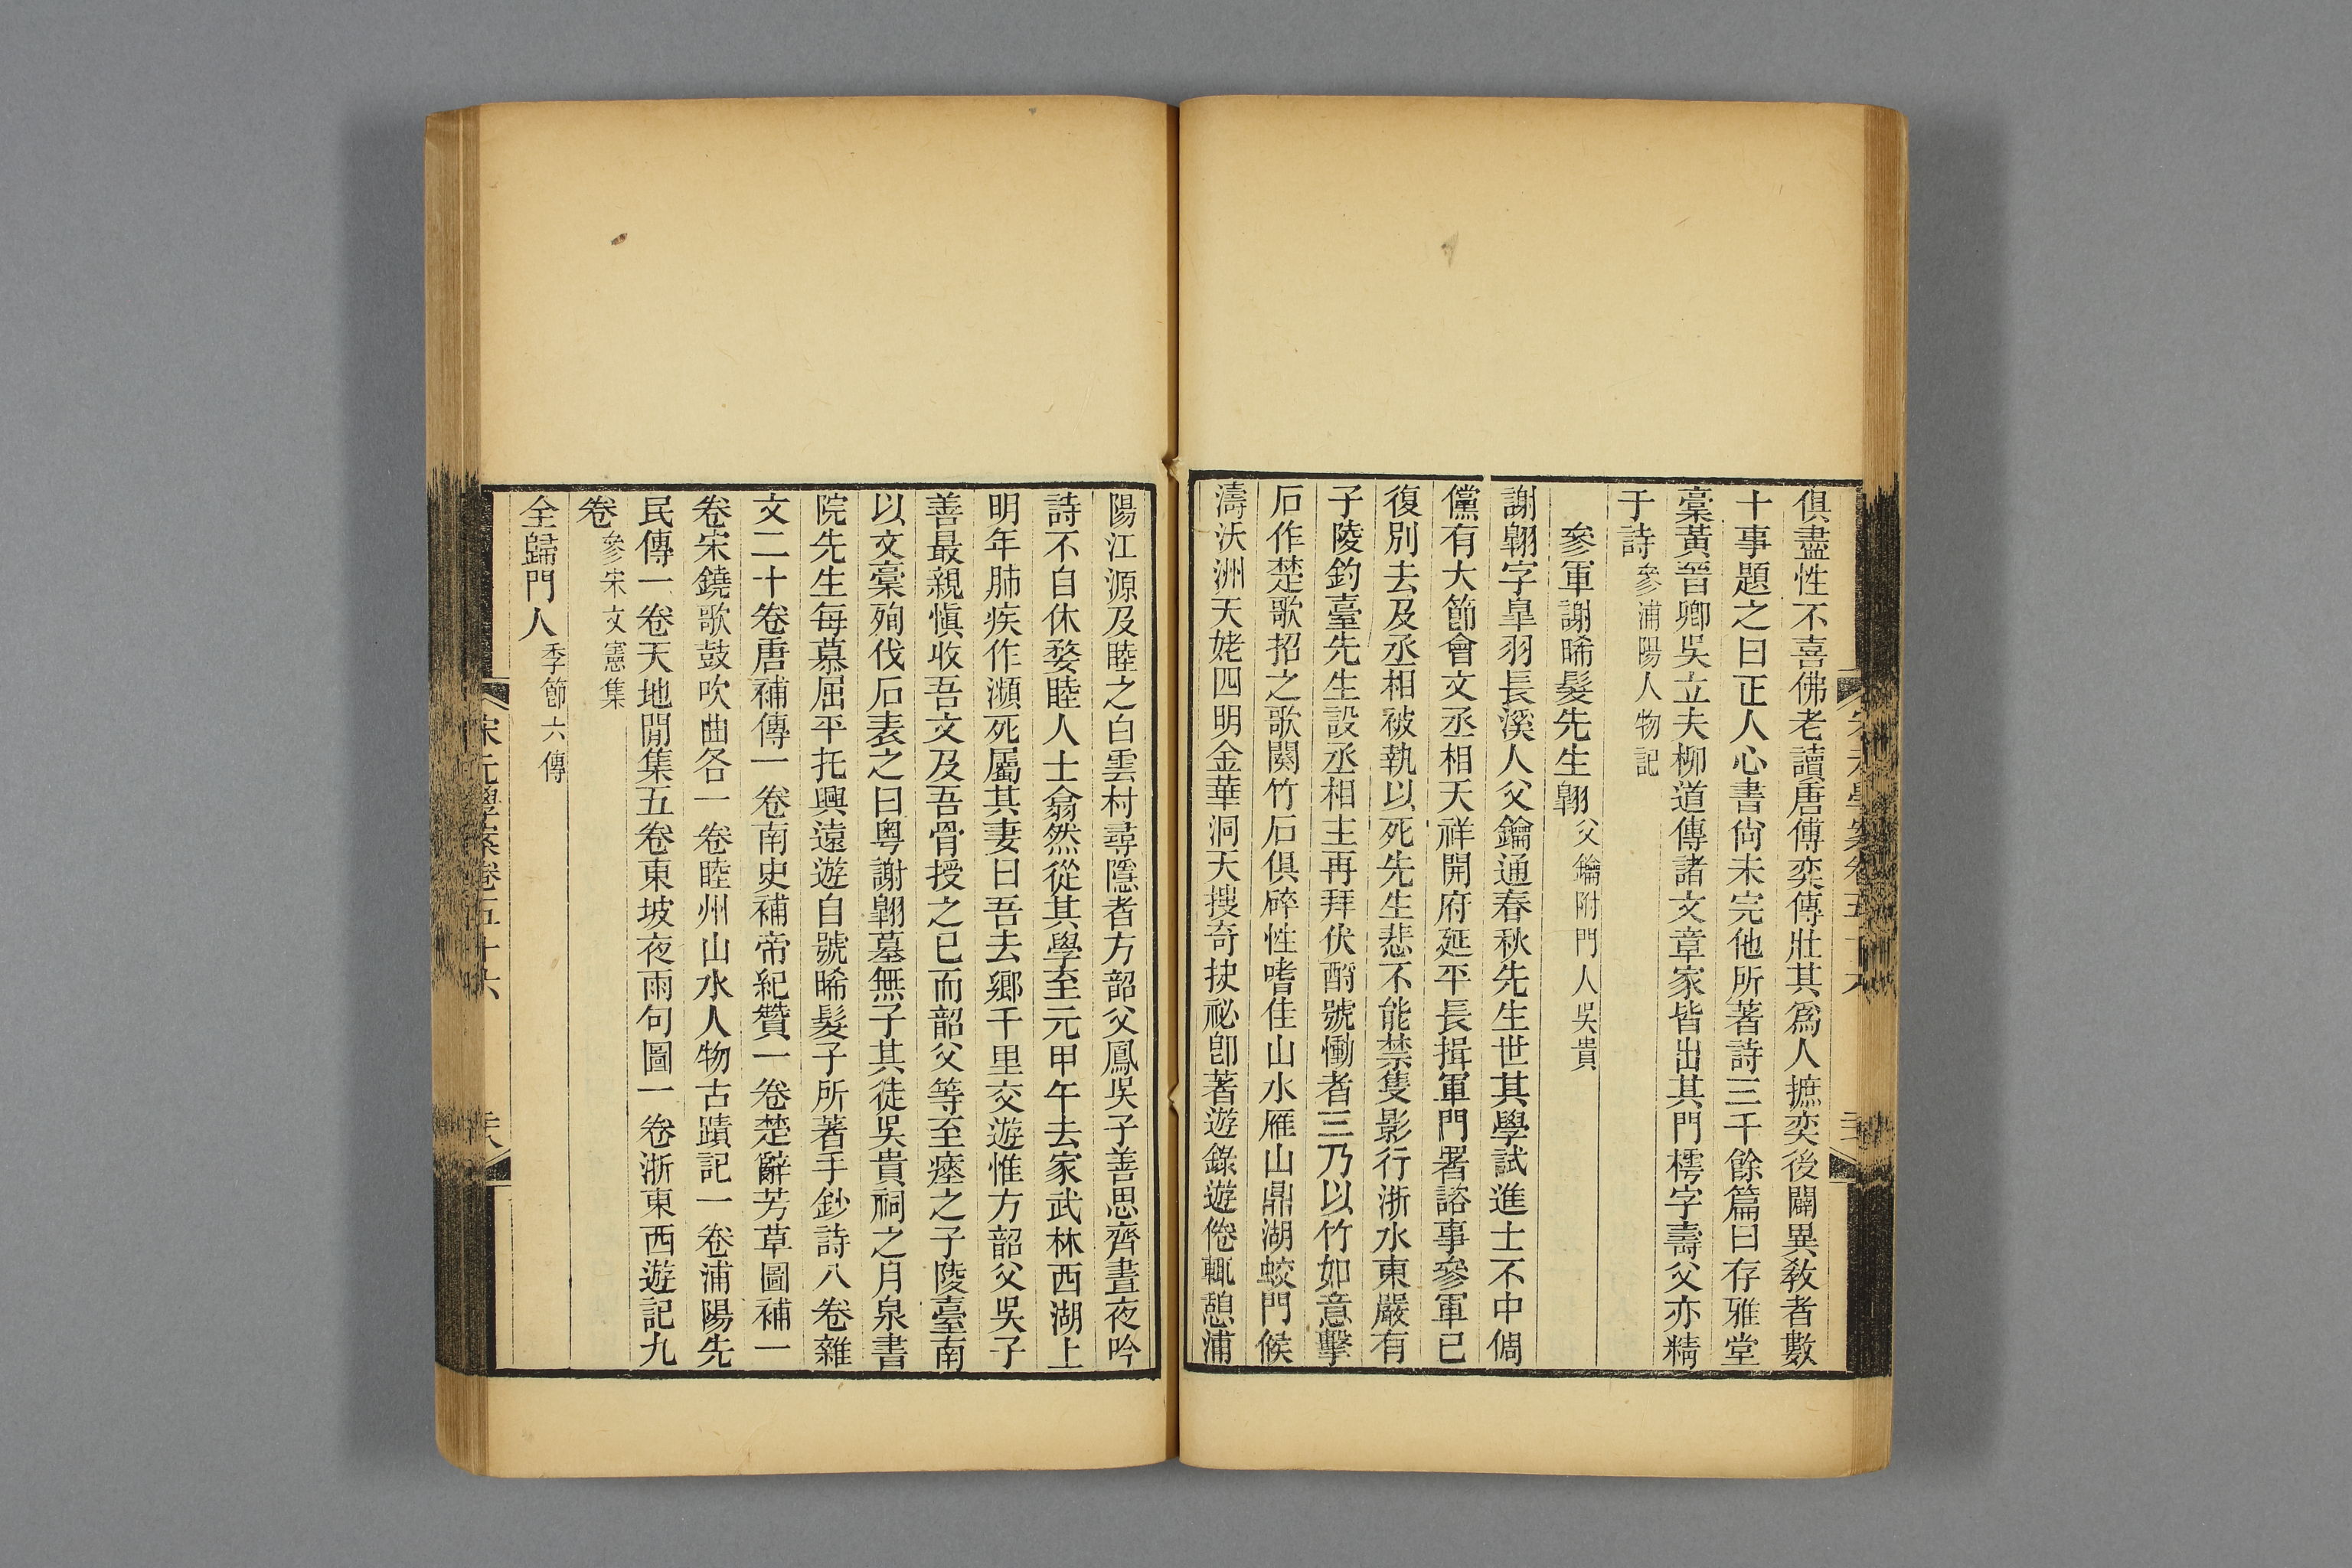 俱盡性不喜佛老讀唐傅奕傳壯其爲人摭奕後闢異敎者數
十事題之曰正人心書尙未完他所著詩三千餘篇曰存雅堂
稾黃晉卿吳立夫柳道傳諸文章家皆出其門樗字壽父亦精
于詩參浦陽人物記
參軍謝晞髮先生翺父鑰附門人吳貴
謝翺字皐羽長溪人父鑰通春秋先生世其學試進士不中倜
儻有大節會文丞相天祥開府延平長揖軍門署諮事參軍已
復別去及丞相被執以死先生悲不能禁隻影行浙水東嚴有
子陵釣臺先生設丞相主再拜伏酹號慟者三乃以竹如意擊
石作楚歌招之歌闋竹石俱碎性嗜佳山水雁山鼎湖蛟門候
濤沃洲天姥四明金華洞天搜奇抉祕卽著遊錄遊倦輒憩浦
陽江源及睦之白雲村尋隱者方韶父鳳吳子善思齊晝夜吟
詩不自休婺睦人士翕然從其學至元甲午去家武林西湖上
明年肺疾作瀕死屬其妻曰吾去鄉千里交遊惟方韶父吳子
善最親愼收吾文及吾骨授之已而韶父等至瘞之子陵臺南
以文稾殉伐石表之曰粵謝翺墓無子其徒吳貴祠之月泉書
院先生每慕屈平托興遠遊自號晞髮子所著手鈔詩八卷雜
文二十卷唐補傳一卷南史補帝紀贊一卷楚辭芳草圖補一
卷宋鐃歌鼓吹曲各一卷睦州山水人物古蹟記一卷浦陽先
民傳一卷天地閒集五卷東坡夜雨句圖一卷浙東西遊記九
卷參宋文憲集
全歸門人季節六傳
宋元學案卷五十六